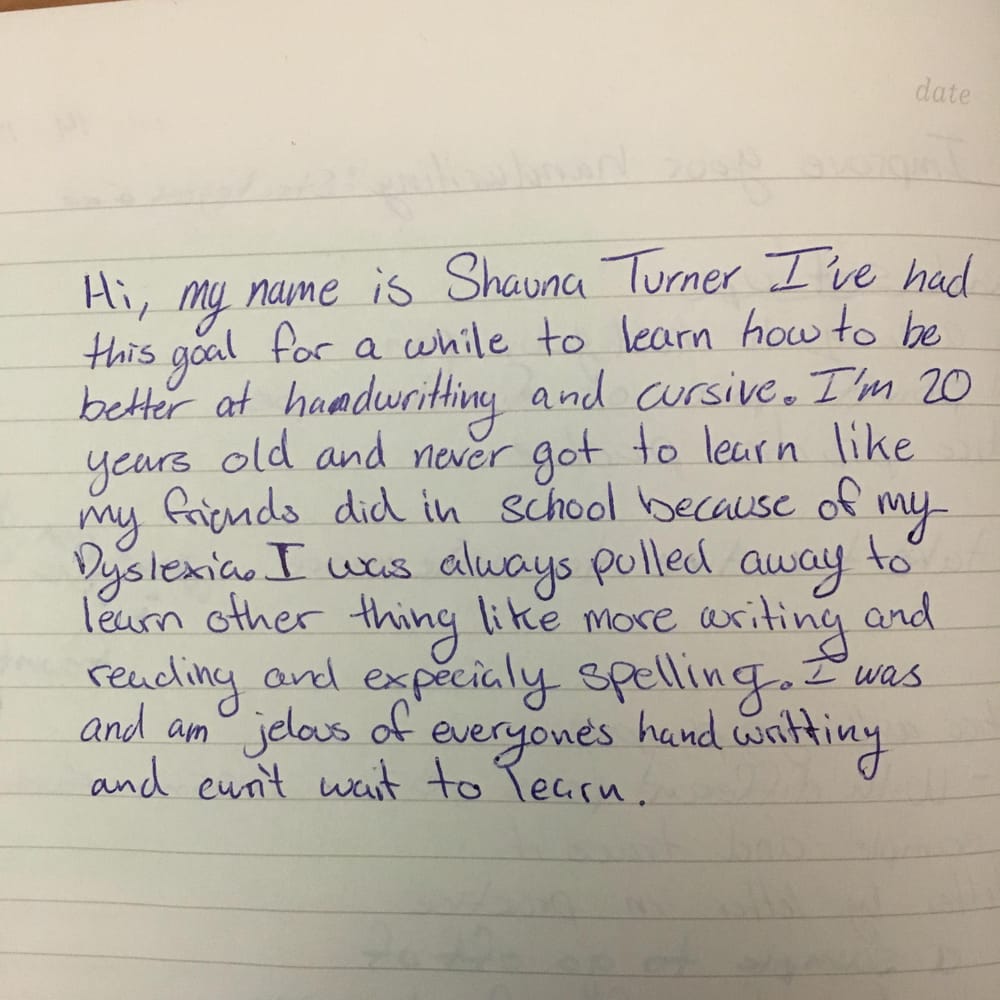 date
Hi, my name is Shauna Turner I've had
this goal for a while to learn how to be
better at handwritting and cursive. I'm 20
years old and never got to learn like
my friends did in school because of my
Dyslexia. I was always pulled away to
learn other thing like more writing and
reading and expecialy spelling. I was
and am jelous of everyone's hand writting
and can't wait to learn.